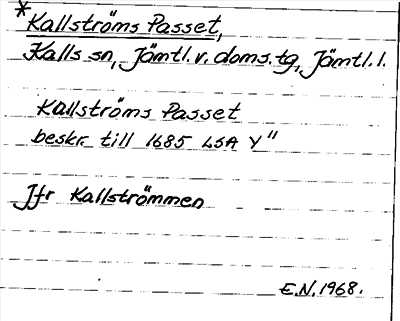 *
Kallströms Passet,
Kalls sn, Jämtl. v. doms. tg, Jämtl. l.
Kallströms Passet
beskr. till 1685 LSA Y"
Jfr Kallströmmen
E.N. 1968.